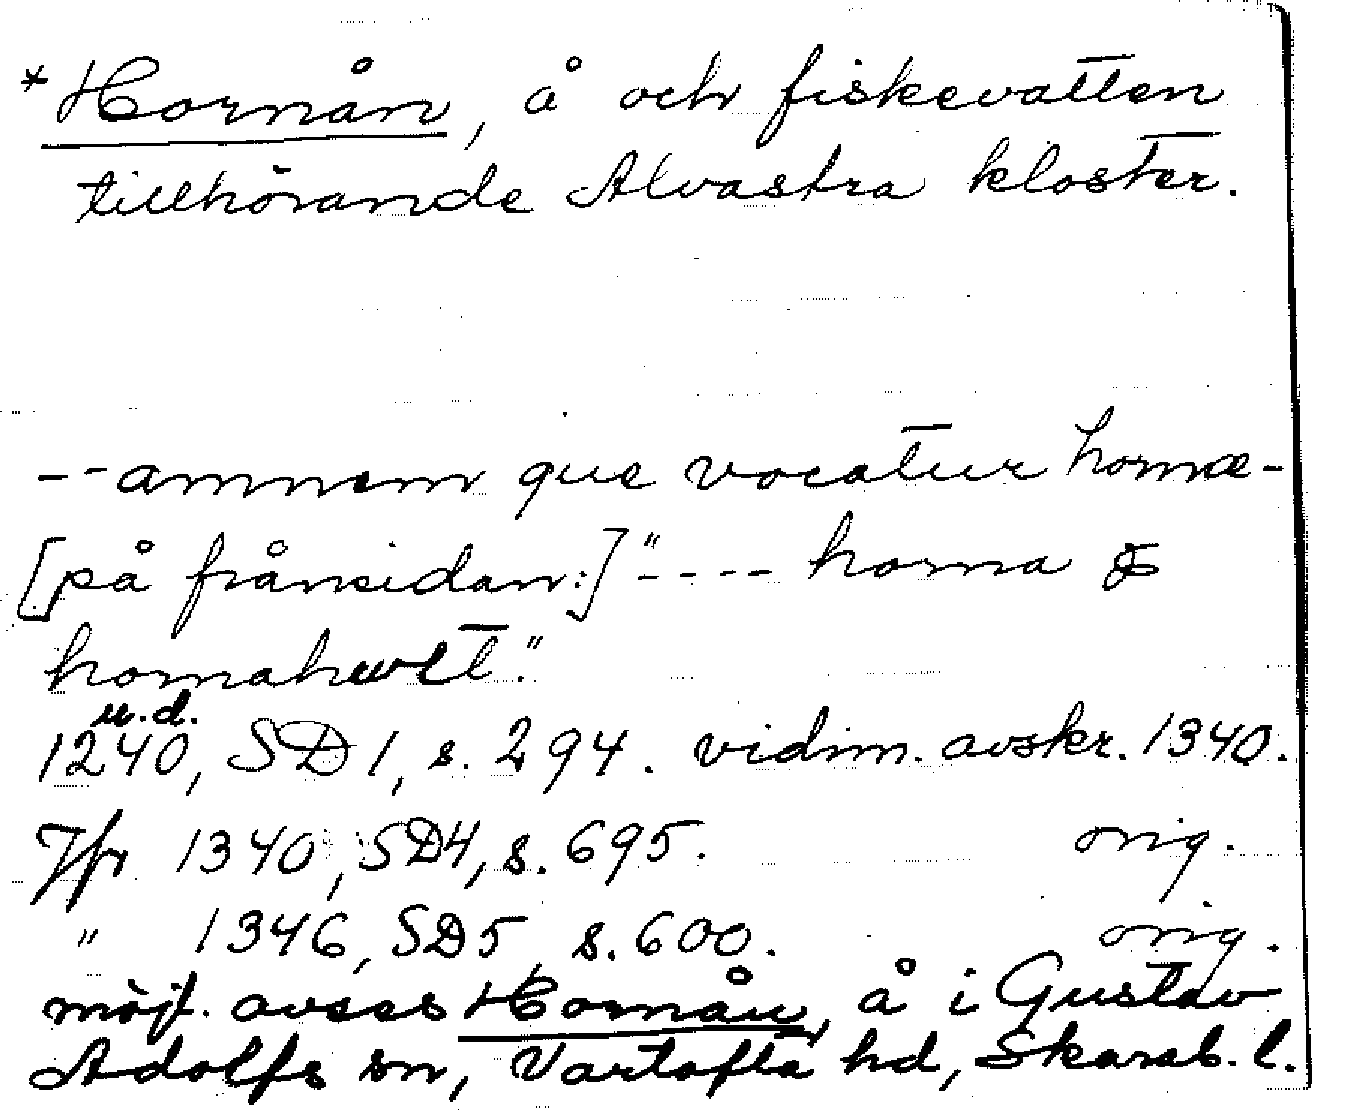 *Hornån, å och fiskevatten
tillhörande Alvastra kloster.
-- amnem que vocatur hornæ-
[på frånsidan:] "---- horna &
hornahwlt."
u.d.
1240, SD 1, s. 294. vidim. avskr. 1340.
Jfr 1340, SD4, s. 695. orig.
" 1346, SD5, s. 600. orig.
möjl. avses Hornån, å i Gustav
Adolfs sn, Vartofta hd, Skarab. l.